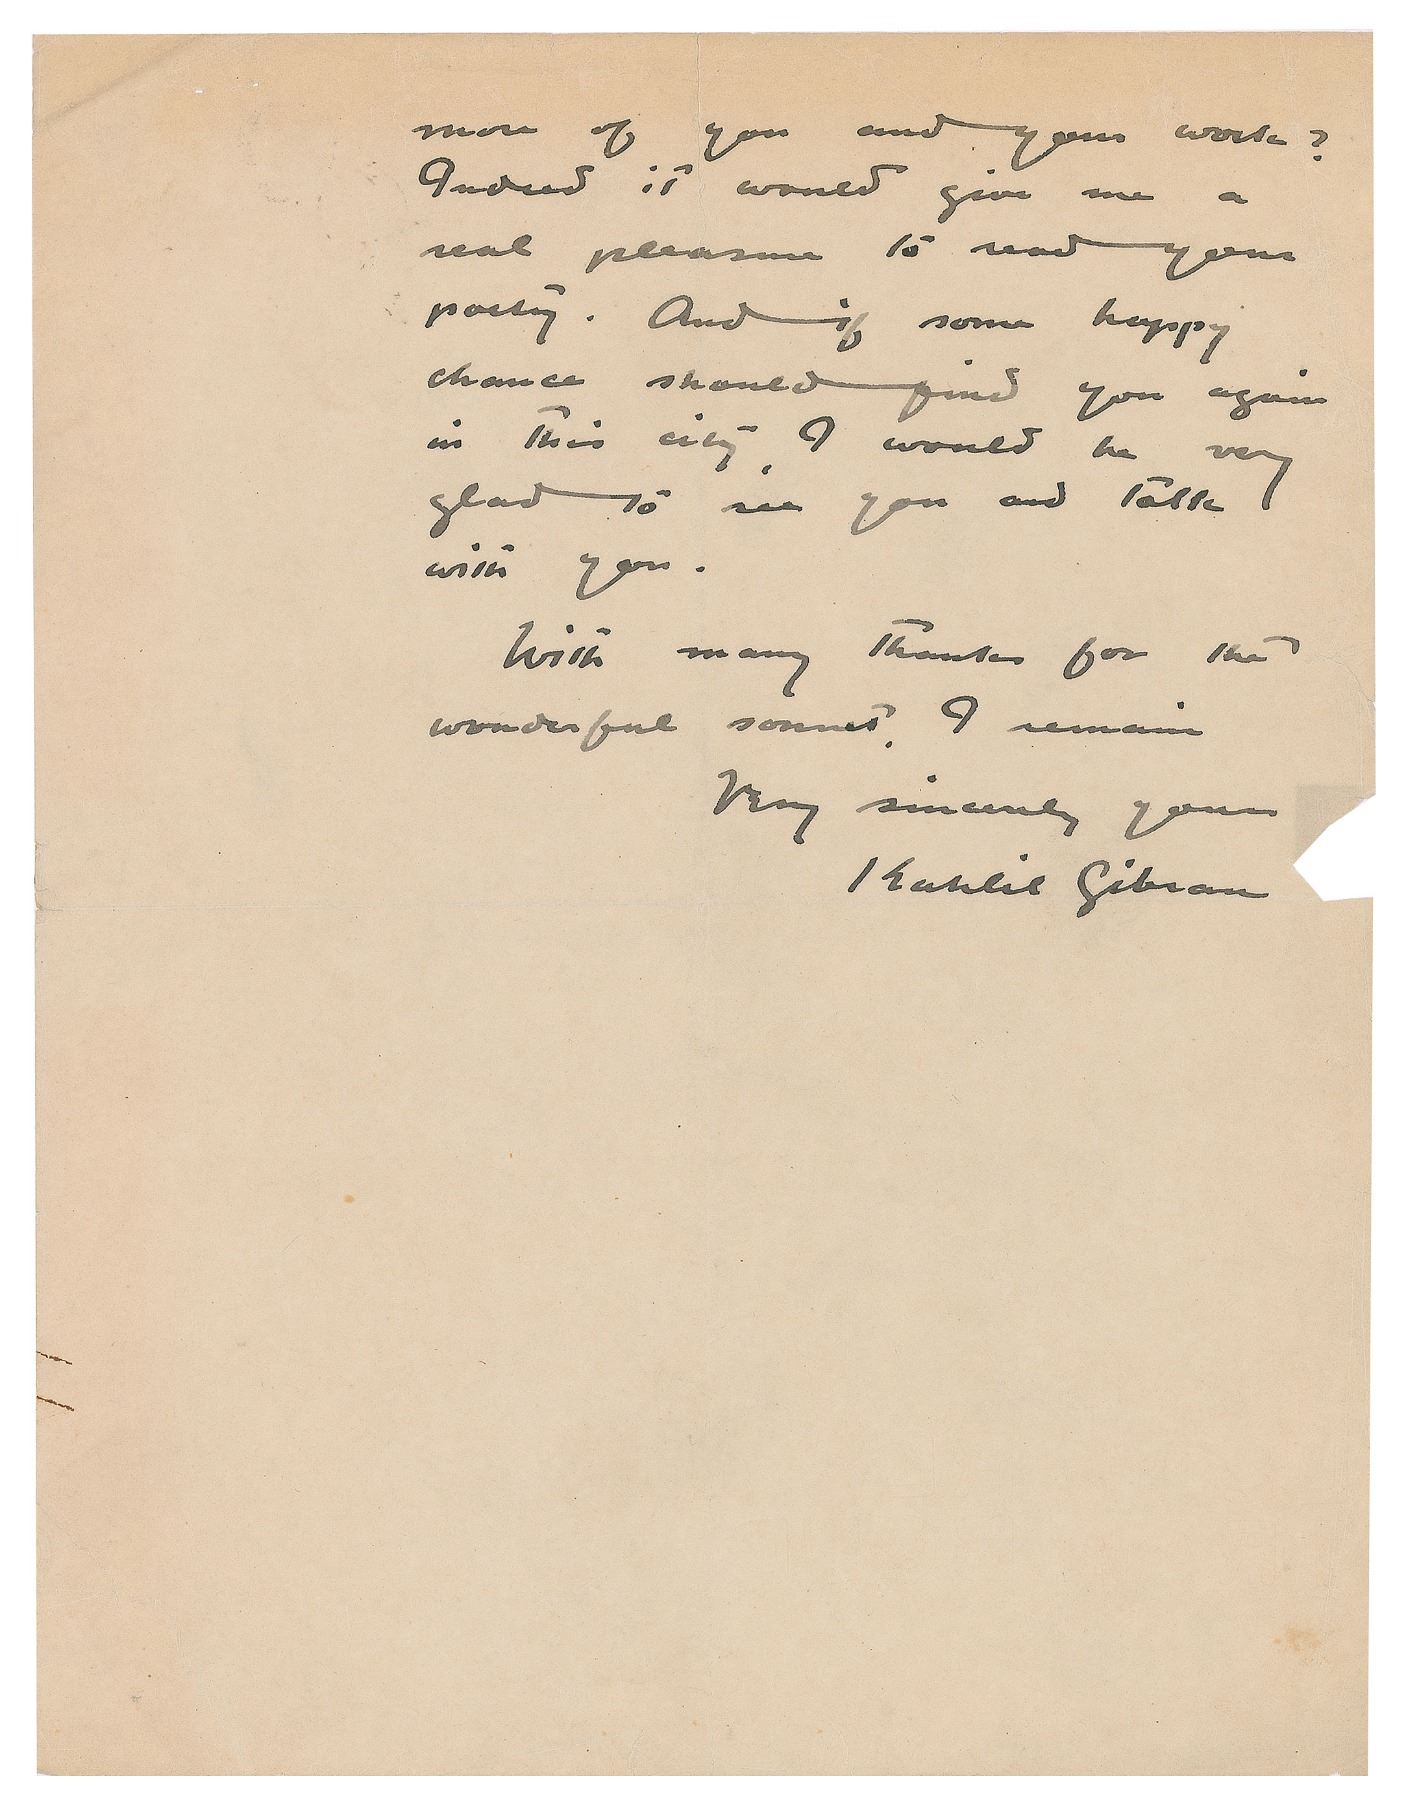 more of you and your work?
Indeed it would give me a
real pleasure to read your
poetry. And if some happy
chance should find you again
in this city, I would be very
glad to see you and talk
with you.
With many thanks for the
wonderful sonnet, I remain
Very sincerely yours
Kahlil Gibran